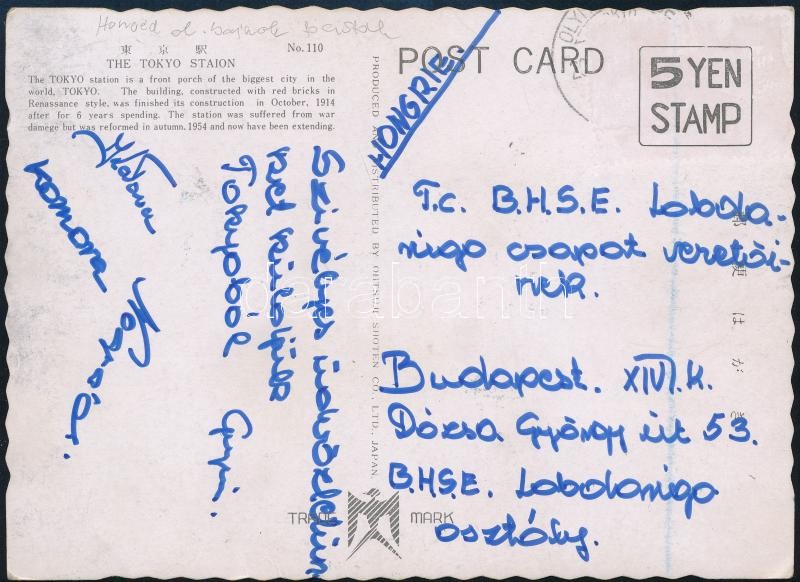 東京駅
No. 110
THE TOKYO STAION
The TOKYO station is a front porch of the biggest city in the
world, TOKYO. The building, constructed with red bricks in
Renassance style, was finished its construction in October, 1914
after for 6 years spending. The station was suffered from war
damege but was reformed in autumn. 1954 and now have been extending.
POST CARD
5 YEN
STAMP
HONGRIE
PRODUCED AND DISTRIBUTED BY OHTSUJI SHOTEN CO., LTD., JAPAN.
郵便はがき
T.c. B.H.S.E. Labda-
rúgó csapat vezetői-
nek.
Budapest. XIV.k.
Dózsa György út 53.
B.H.S.E. Labdarúgó
osztály.
Szívélyes üdvözletün
ket küldjük
Tokyoból
Gyuri.
Komora
TRADE MARK
darabanth